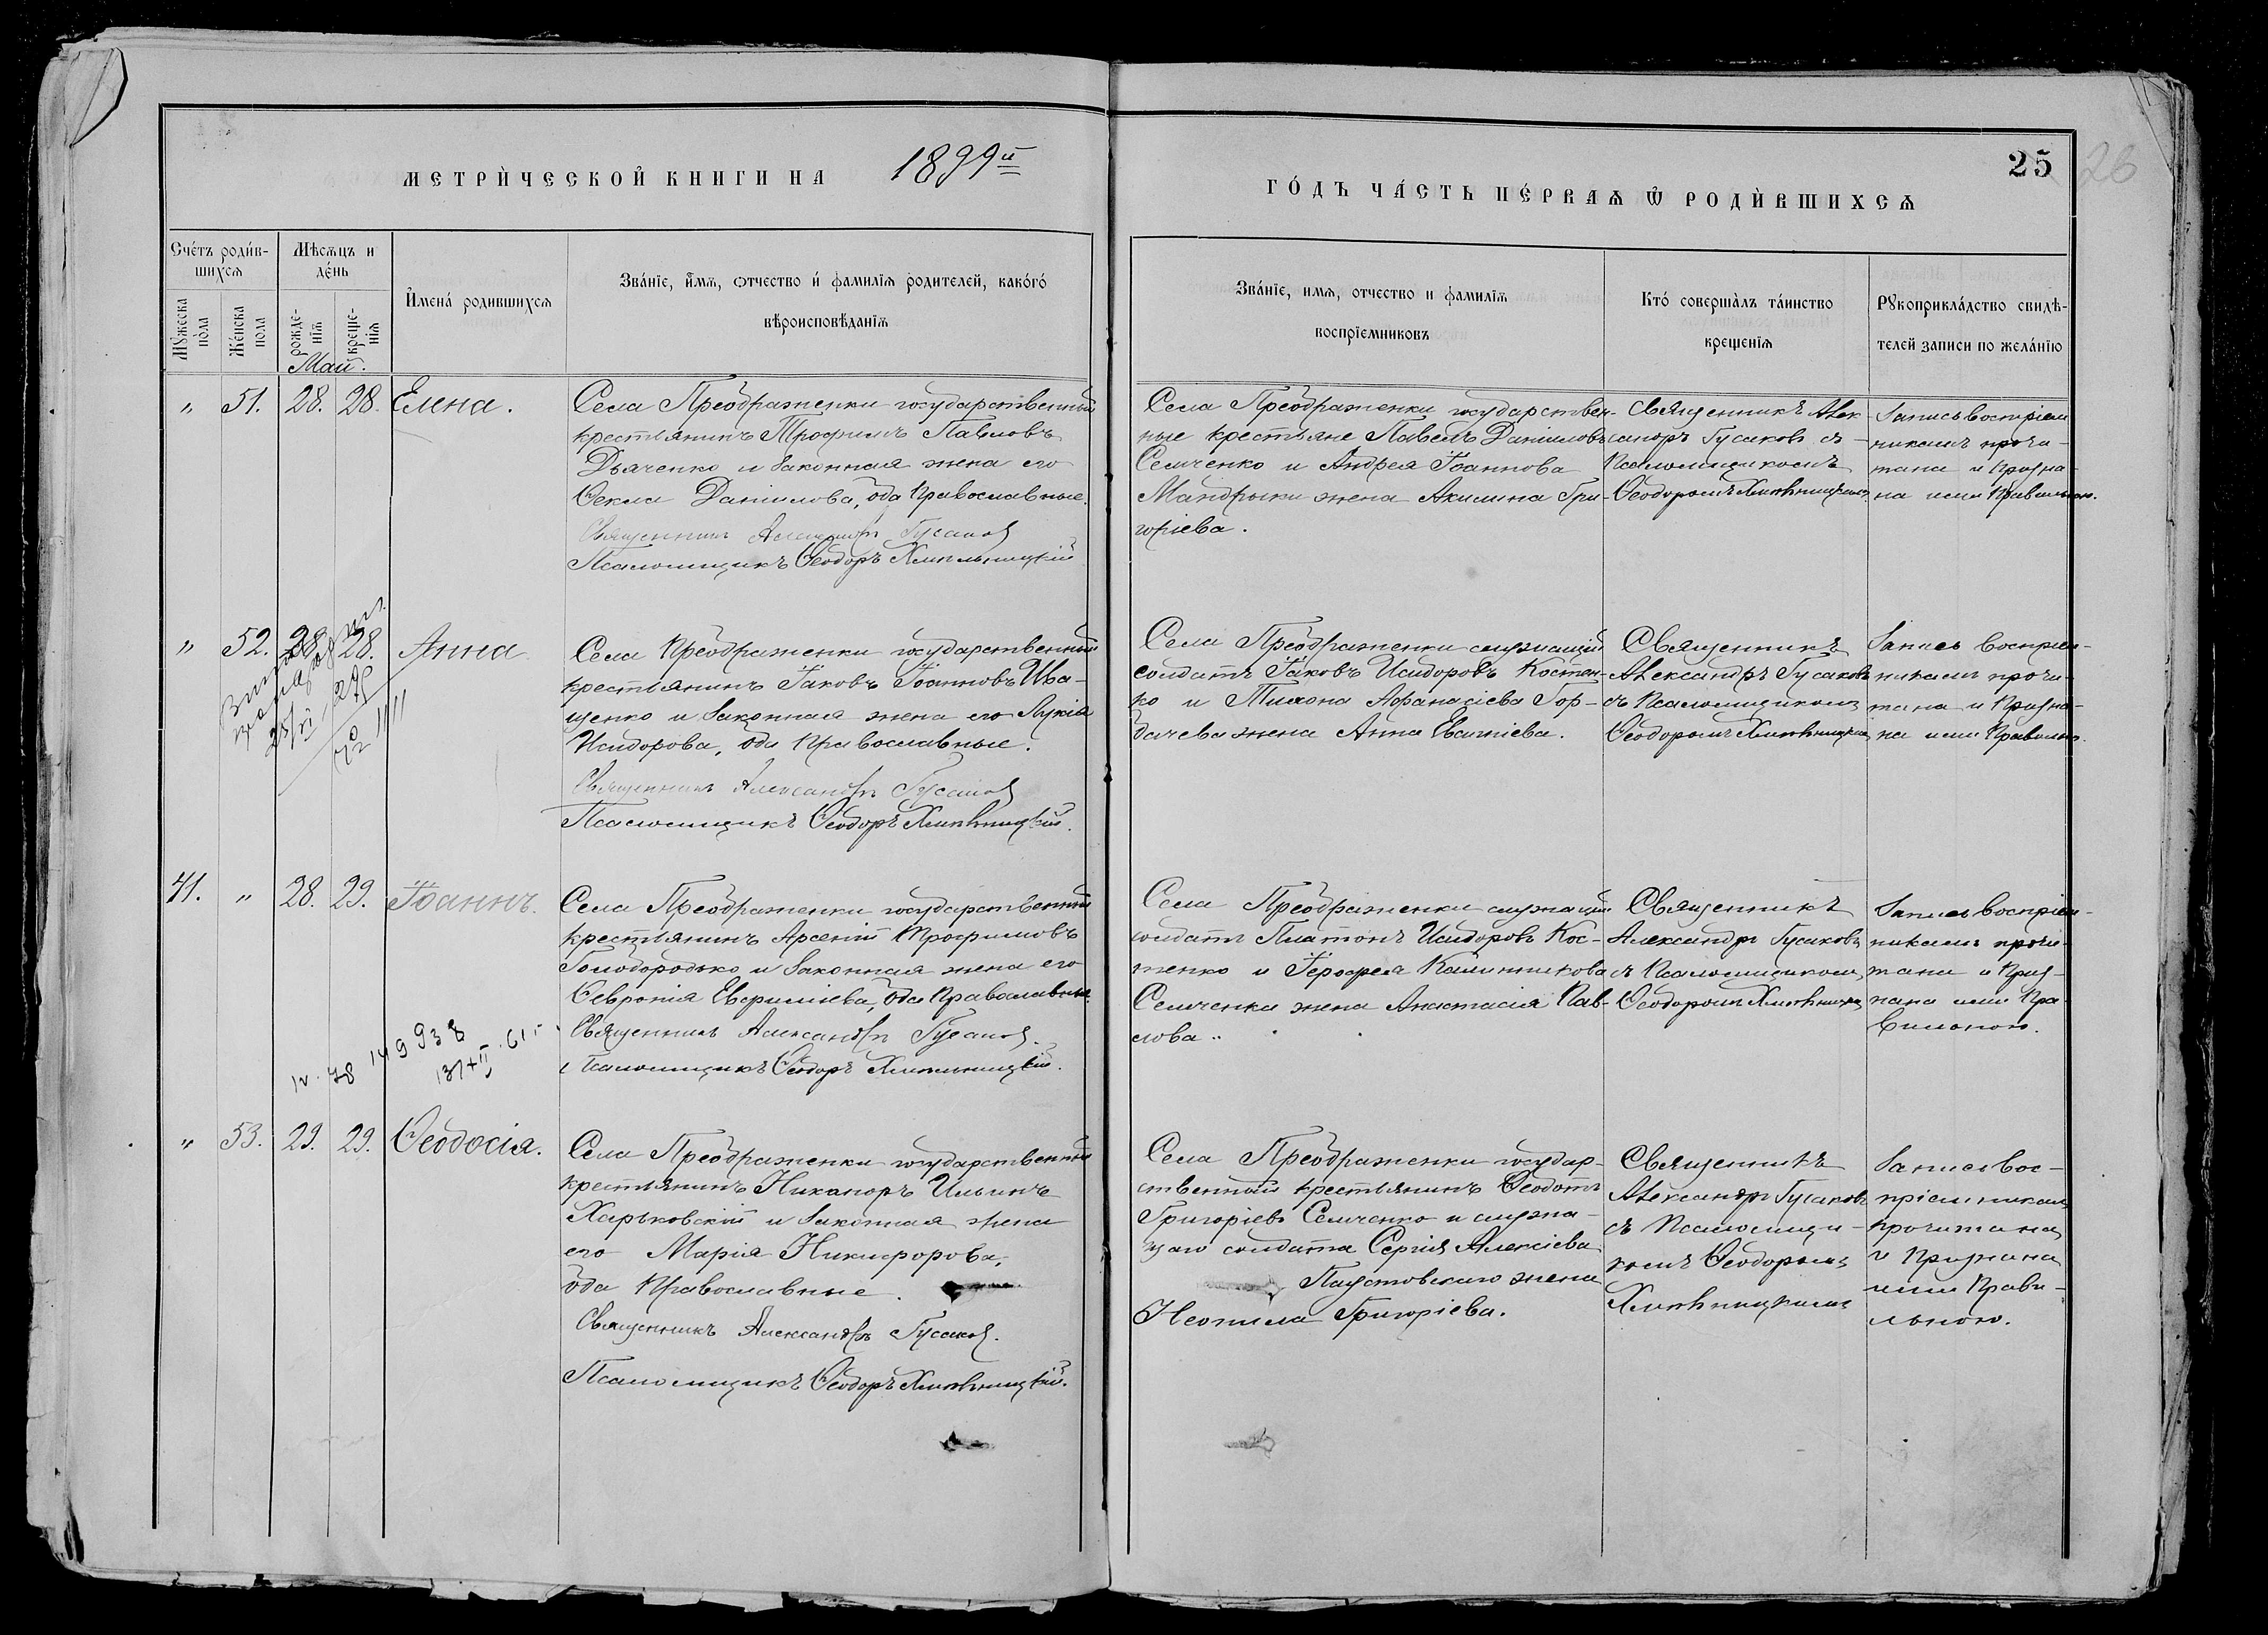 МЕТРИ́ЧЕСКОЙ КНИГИ НА 1899й
ГО́ДЪ ЧА́СТЬ ПЕ́РВАѦ Ѡ РОДИ́ВШИХСѦ
25
26
Сче́тъ роди́в-
шихсѧ
Мѣсѧцъ и
де́нь
Мꙋжеска
по́ла
Же́нска
пола
рожде-
нїѧ
креще-
нїѧ
И҆мена́ родившихсѧ
Зва́нїе, и҆мѧ, ѻтчество и҆ фамилїѧ родителей, како́го
вѣроисповѣданїѧ
Зва́нїе, имѧ, отчество и фамилїѧ
воспрїемниковъ
Кто́ соверша́лъ та́инство
крещенїѧ
Рꙋкоприкла́дство свидѣ-
телей записи по жела́нїю
Май.
" 51. 28. 28. Елена.
Села Преображенки государственный
крестьянинъ Трофимъ Павловъ
Дьяченко и законная жена его
Ѳекла Даніилова, оба Православные.
Священникъ Александръ Гусаковъ
Псаломщикъ Ѳеодоръ Хмѣльницкій
Села Преображенки государствен-
ные крестьяне Павелъ Даніиловъ
Семченко и Андрея Іоаннова
Мандрыки жена Акилина Гри-
горіева.
Священникъ Алек-
сандръ Гусаковъ съ
Псаломщикомъ
Ѳеодоромъ Хмѣльницкимъ
Запись воспріем
никамъ прочи-
тана и призна-
на ими правильною.
" 52. 28. 28. Анна
Села Преображенки государственный
крестьянинъ Іаковъ Іоанновъ Ива-
щенко и законная жена его Лукія
Исидорова, оба Православные.
Священникъ Александръ Гусаковъ
Псаломщикъ Ѳеодоръ Хмѣльницкій.
Села Преображенки служащій
солдатъ Іаковъ Исидоровъ Костен-
ко и Тихона Афанасіева Гор-
бачева жена Анна Евгеніева.
Священникъ
Александръ Гусаковъ
съ Псаломщикомъ
Ѳеодоромъ Хмѣльницкимъ
Запись воспріем-
никамъ прочи-
тана и призна-
на ими правильно.
41. " 28. 29. Іоаннъ.
Села Преображенки государственный
крестьянинъ Арсеній Трофимовъ
Голобородько и законная жена его
Ѳевронія Евфиміева, оба Православные.
Священникъ Александръ Гусаковъ.
Псаломщикъ Ѳеодоръ Хмѣльницкій.
Села Преображенки служащій
солдатъ Платонъ Исидоровъ Кос-
тенко и Іерофея Калинникова
Семченка жена Анастасія Пав-
лова.
Священникъ
Александръ Гусаковъ
съ Псаломщикомъ
Ѳеодоромъ Хмѣльницкимъ
Запись воспріем-
никамъ прочи-
тана и приз-
нана ими пра-
вильною.
149938
" 53. 29. 29. Ѳеодосія.
Села Преображенки государственный
крестьянинъ Никаноръ Ильинъ
Харьковскій и законная жена
его Марія Никифорова,
оба Православные.
Священникъ Александръ Гусаковъ.
Псаломщикъ Ѳеодоръ Хмѣльницкій.
Села Преображенки государ-
ственный крестьянинъ Ѳеодотъ
Григоріевъ Семченко и служа-
щаго солдата Сергія Алексіева
Паустовскаго жена
Неонила Григоріева.
Священникъ
Александръ Гусаковъ
съ Псаломщи-
комъ Ѳеодоромъ
Хмѣльницкимъ
Запись вос-
пріемникамъ
прочитана
и признана
ими прави-
льною.